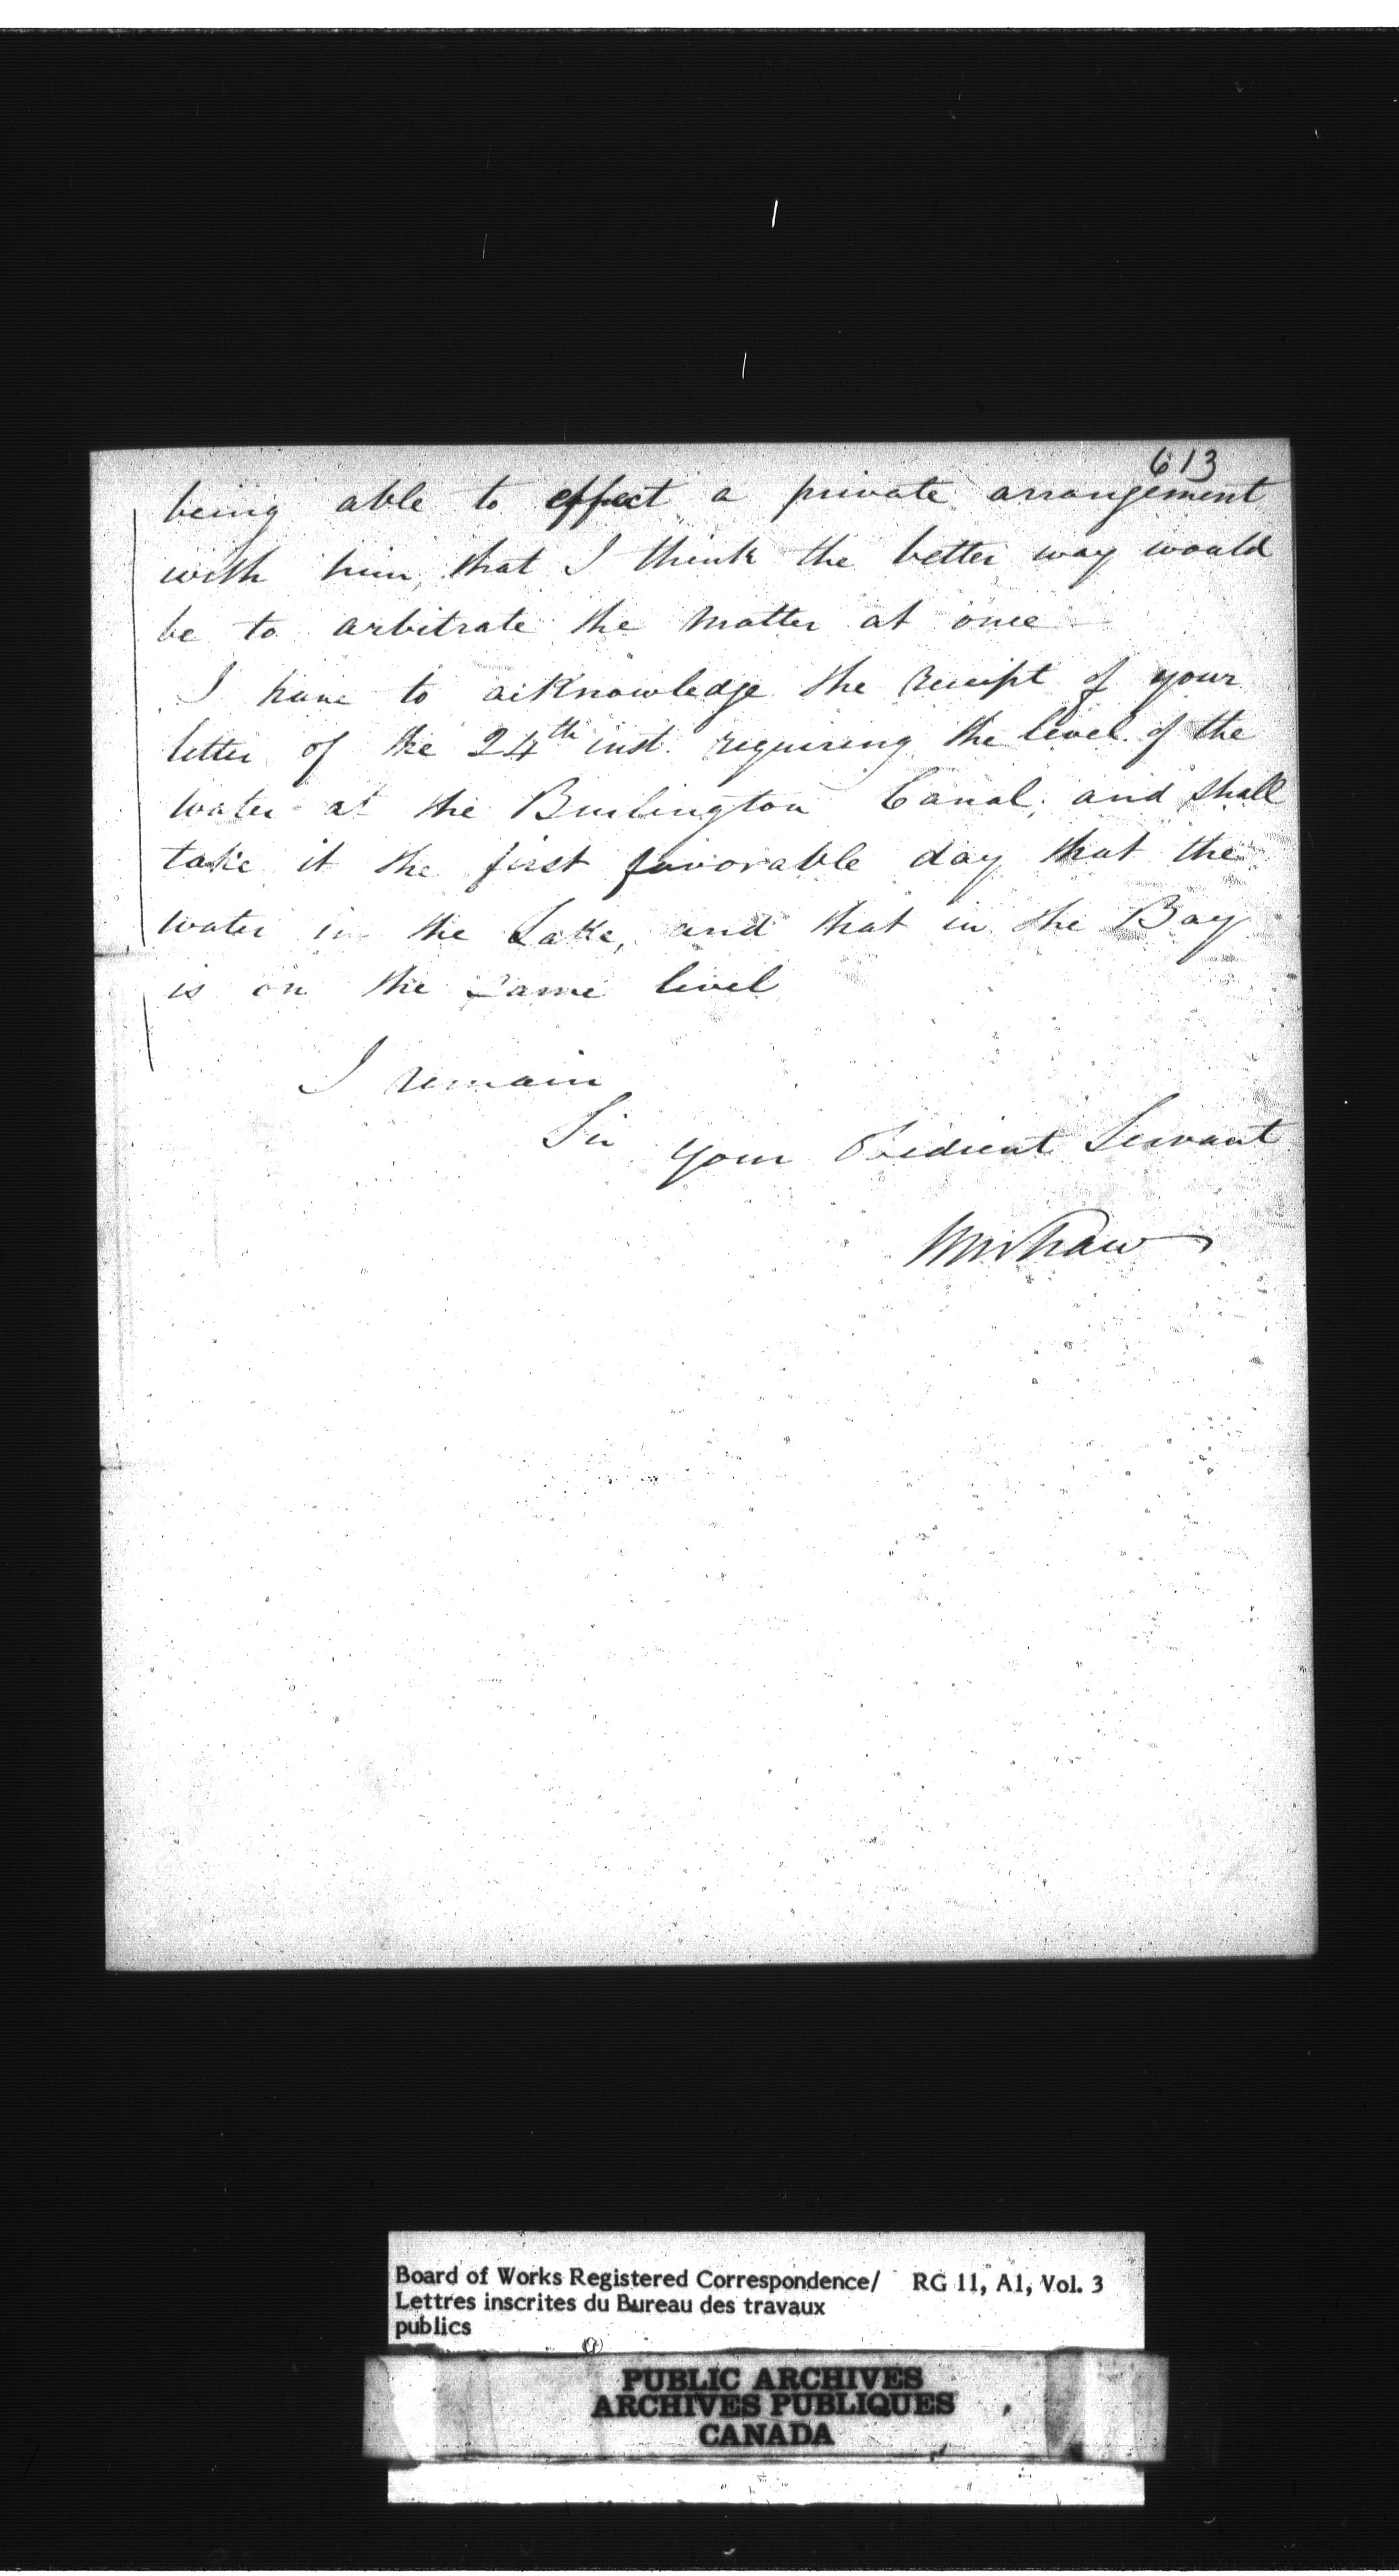 613
being able to effect a private arrangement
with him, that I think the better way would
be to arbitrate the matter at once
I have to acknowledge the receipt of your
letter of the 24th inst. requiring the level of the
water at the Burlington Canal, and shall
take it the first favorable day that the
water in the Lake, and that in the Bay
is on the same level
I remain
Sir your Obedient Servant
Wm Shaw
Board of Works Registered Correspondence/ RG 11, A1, Vol. 3
Lettres inscrites du Bureau des travaux
publics
PUBLIC ARCHIVES
ARCHIVES PUBLIQUES
CANADA